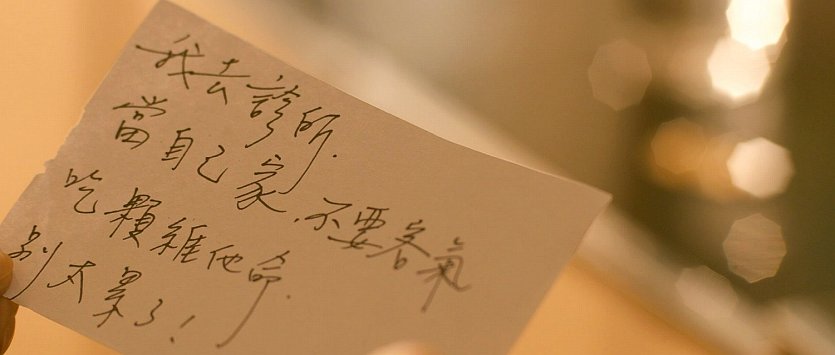 我去診所.
當自己家,不要客氣
吃顆維他命.
別太累了!